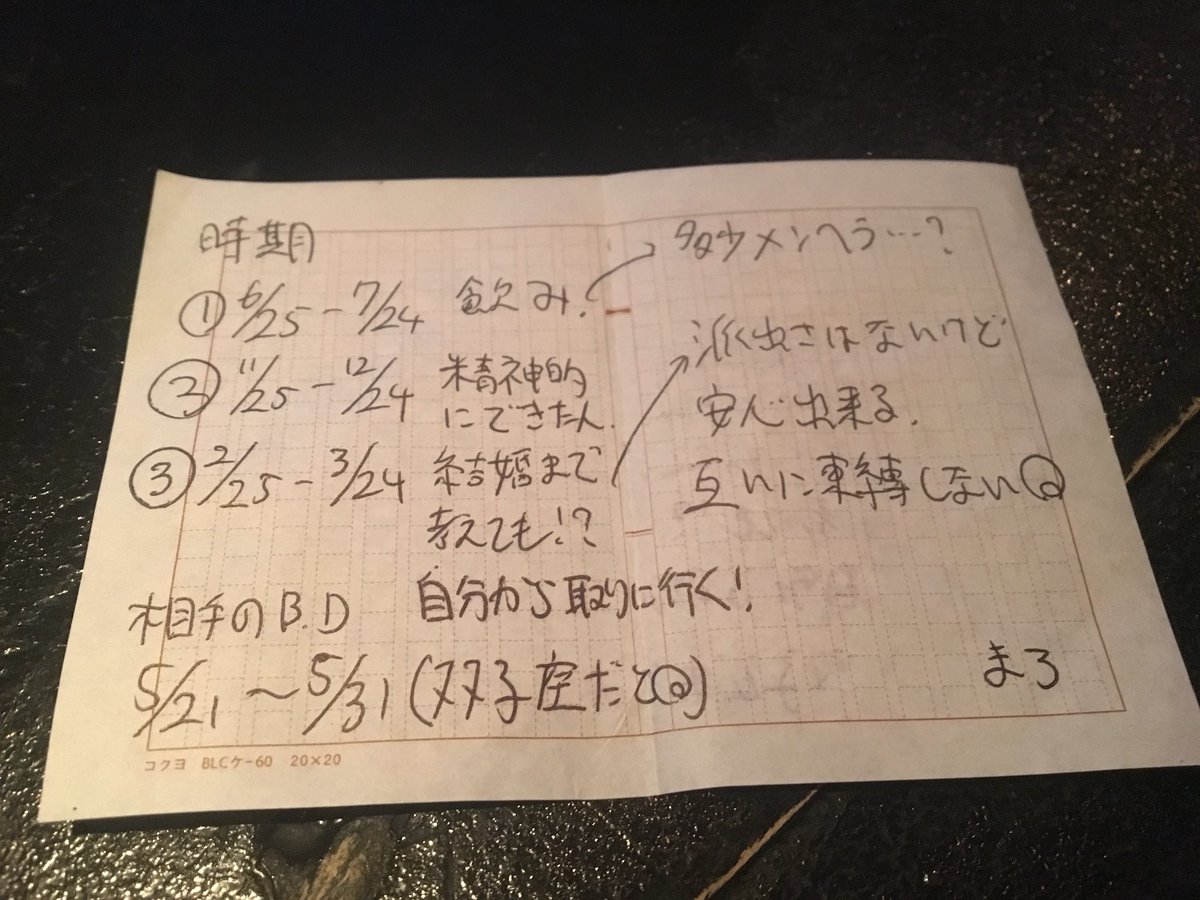 時期
①6/25-7/24 飲み.
多少メンヘラ…?
②11/25-12/24 精神的
にできた人.
③2/25-3/24 結婚まで
考えても!?
派出さはないけど
安心出来る.
互いに束縛しない◎
自分から取りに行く!
相手のB.D
5/21〜5/31(双子座だと◎)
まろ
コクヨ BLCケ-60 20×20